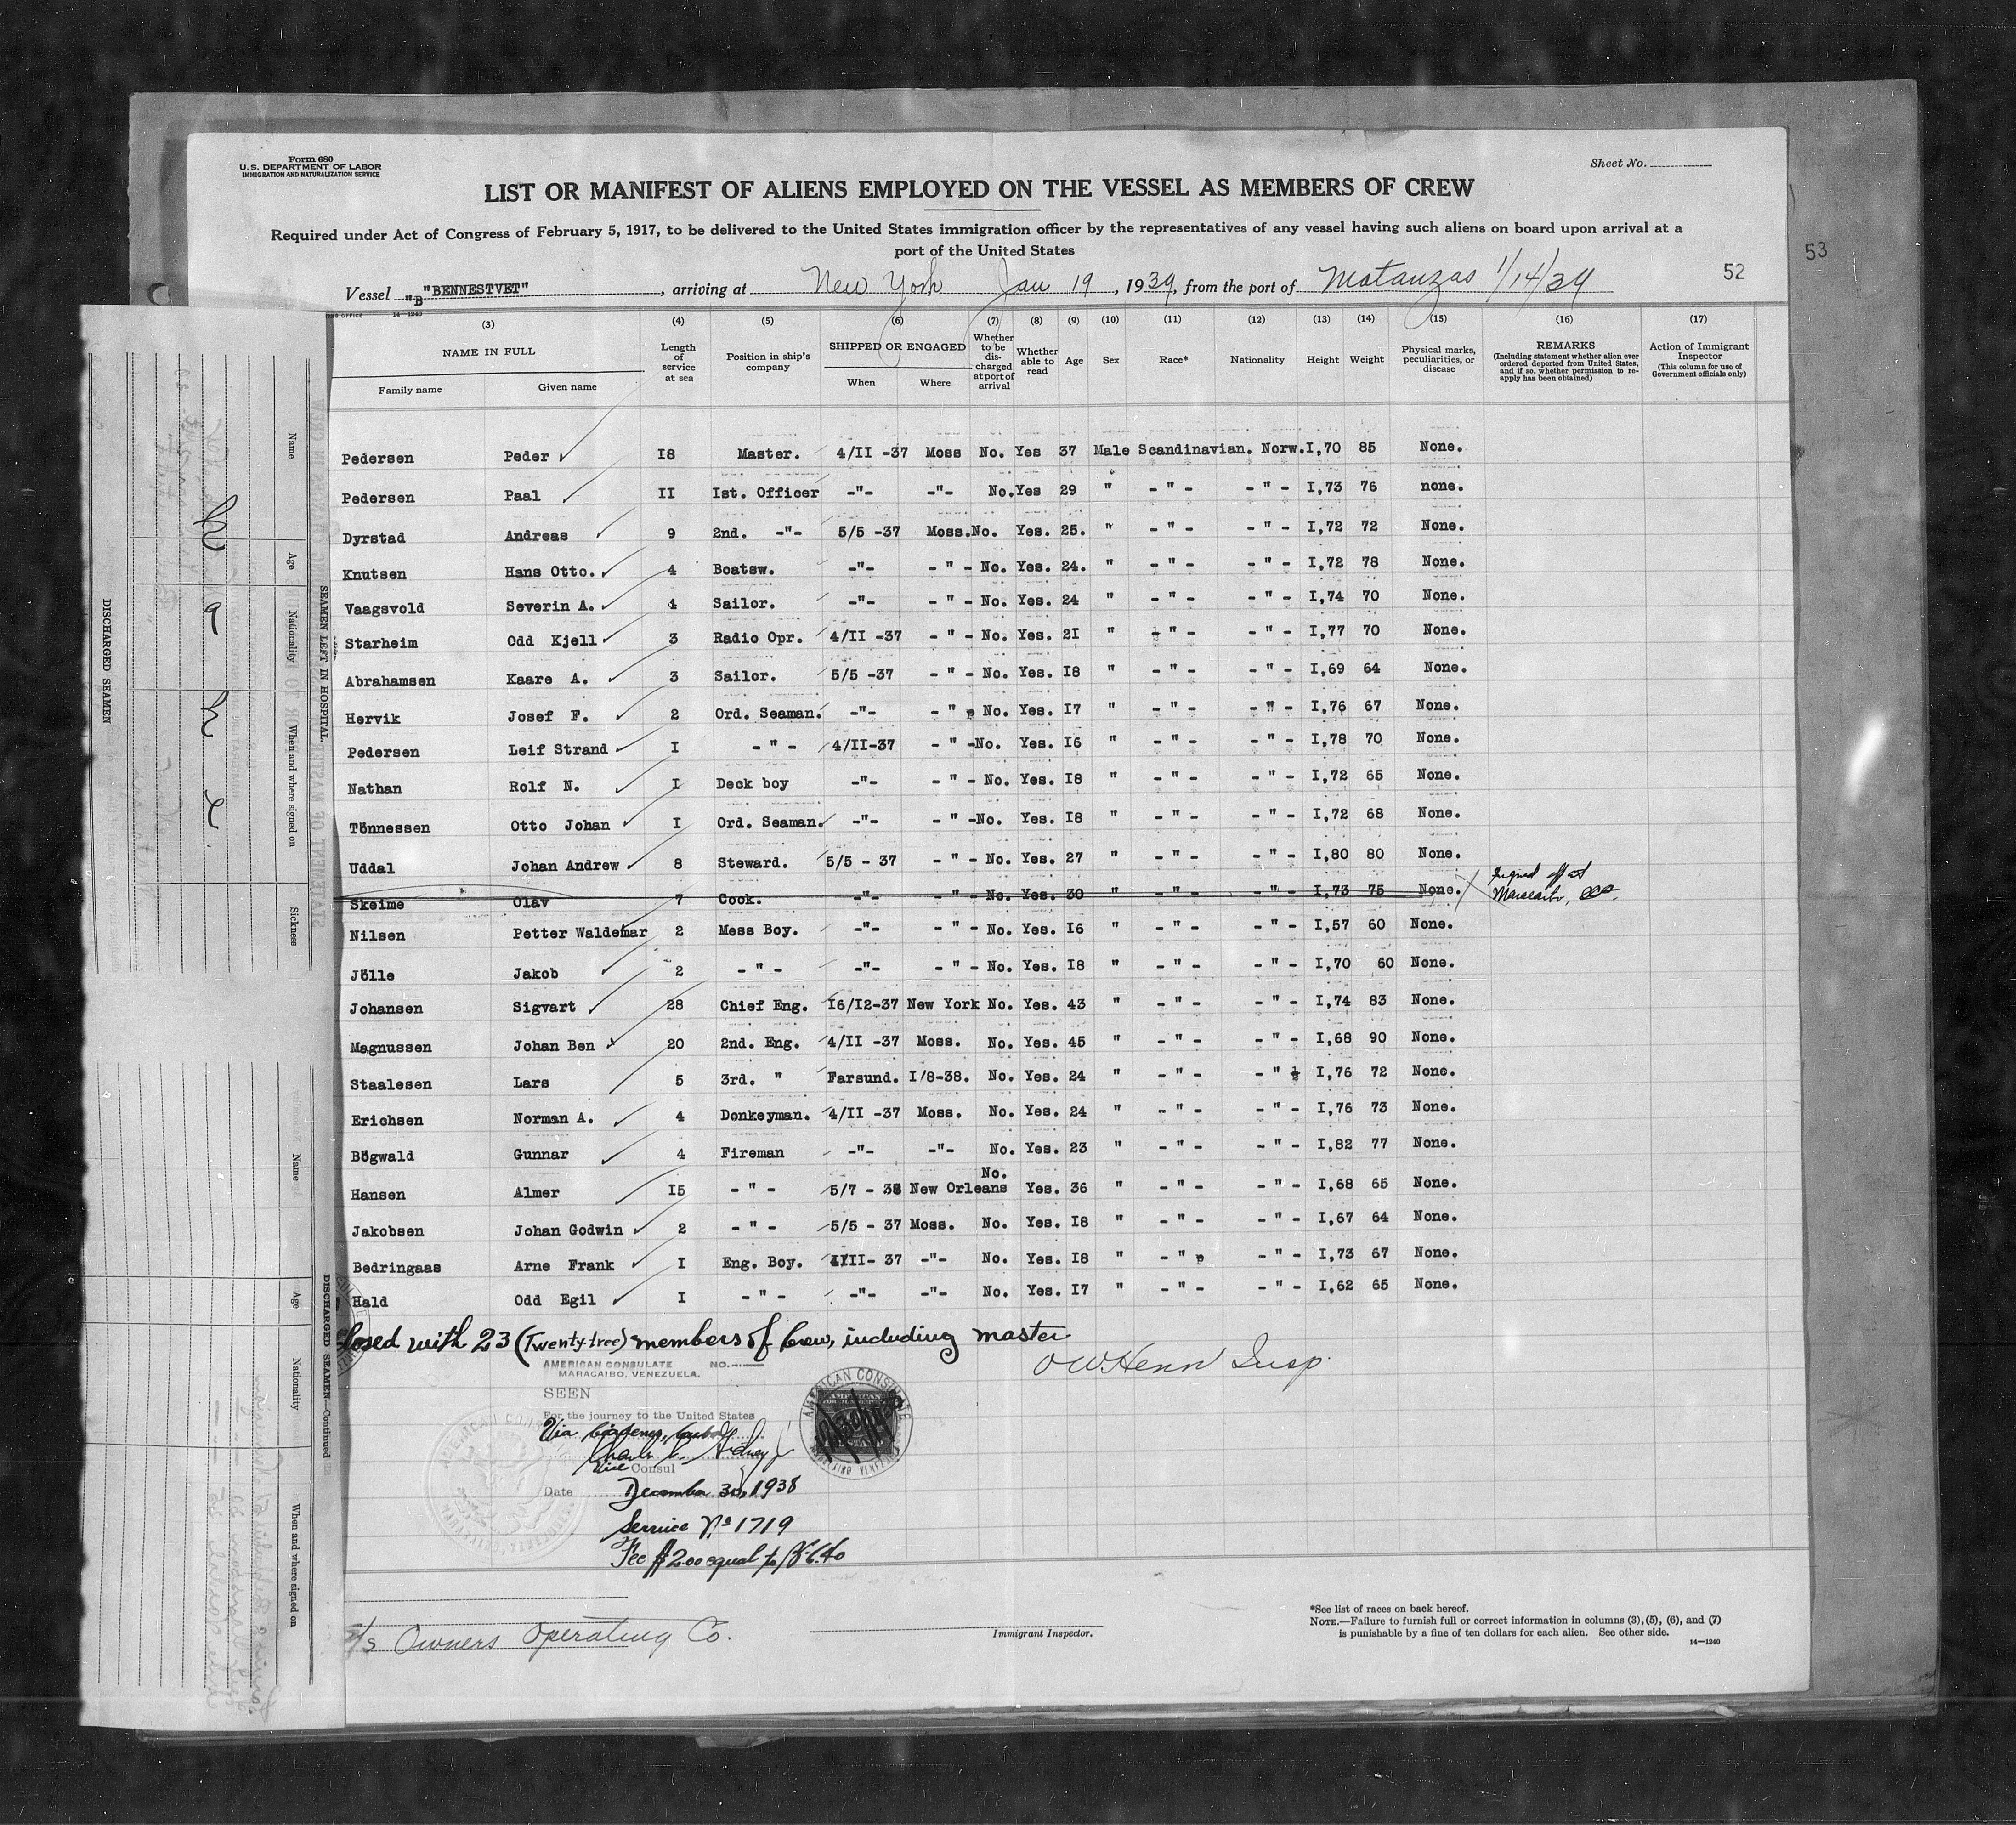 Form 680
U.S. DEPARTMENT OF LABOR
IMMIGRATION AND NATURALIZATION SERVICE
Sheet No.
LIST OR MANIFEST OF ALIENS EMPLOYED ON THE VESSEL AS MEMBERS OF CREW
Required under Act of Congress of February 5, 1917, to be delivered to the United States immigration officer by the representatives of any vessel having such aliens on board upon arrival at a
port of the United States
52
53
Vessel "B" "BENNESTVET", arriving at New York Jan 19, 1939, from the port of Matanzas 1/14/39
14—1240
(3) (4) (5) (6) (7) (8) (9) (10) (11) (12) (13) (14) (15) (16) (17)
NAME IN FULL Family name Given name Length of service at sea Position in ship's company SHIPPED OR ENGAGED When Where Whether to be discharged at port of arrival Whether able to read Age Sex Race* Nationality Height Weight Physical marks, peculiarities, or disease REMARKS (Including statement whether alien ever ordered deported from United States, and if so, whether permission to reapply has been obtained) Action of Immigrant Inspector (This column for use of Government officials only)
Pedersen Peder I8 Master. 4/II -37 Moss No. Yes 37 Male Scandinavian. Norw. I,70 85 None.
Pedersen Paal II Ist. Officer -"- -"- No. Yes 29 " - " - - " - I,73 76 none.
Dyrstad Andreas 9 2nd. -"- 5/5 -37 Moss. No. Yes. 25. " - " - - " - I,72 72 None.
Knutsen Hans Otto. 4 Boatsw. -"- - " - No. Yes. 24. " - " - - " - I,72 78 None.
Vaagsvold Severin A. 4 Sailor. -"- - " - No. Yes. 24 " - " - - " - I,74 70 None.
Starheim Odd Kjell 3 Radio Opr. 4/II -37 - " - No. Yes. 2I " - " - - " - I,77 70 None.
Abrahamsen Kaare A. 3 Sailor. 5/5 -37 - " - No. Yes. I8 " - " - - " - I,69 64 None.
Hervik Josef F. 2 Ord. Seaman. -"- - " - No. Yes. I7 " - " - - " - I,76 67 None.
Pedersen Leif Strand I - " - 4/II-37 - " - No. Yes. I6 " - " - - " - I,78 70 None.
Nathan Rolf N. I Deck boy -"- - " - No. Yes. I8 " - " - - " - I,72 65 None.
Tönnessen Otto Johan I Ord. Seaman. -"- - " - No. Yes. I8 " - " - - " - I,72 68 None.
Uddal Johan Andrew 8 Steward. 5/5 - 37 - " - No. Yes. 27 " - " - - " - I,80 80 None.
Skeime Olav 7 Cook. -"- - " - No. Yes. 30 " - " - - " - I,73 75 None. Signed off at Maracaibo,
Nilsen Petter Waldemar 2 Mess Boy. -"- - " - No. Yes. I6 " - " - - " - I,57 60 None.
Jölle Jakob 2 - " - -"- - " - No. Yes. I8 " - " - - " - I,70 60 None.
Johansen Sigvart 28 Chief Eng. I6/I2-37 New York No. Yes. 43 " - " - - " - I,74 83 None.
Magnussen Johan Ben 20 2nd. Eng. 4/II -37 Moss. No. Yes. 45 " - " - - " - I,68 90 None.
Staalesen Lars 5 3rd. " Farsund. I/8-38. No. Yes. 24 " - " - - " - I,76 72 None.
Erichsen Norman A. 4 Donkeyman. 4/II -37 Moss. No. Yes. 24 " - " - - " - I,76 73 None.
Bögwald Gunnar 4 Fireman -"- -"- No. Yes. 23 " - " - - " - I,82 77 None.
Hansen Almer I5 - " - 5/7 - 38 New Orleans No. Yes. 36 " - " - - " - I,68 65 None.
Jakobsen Johan Godwin 2 - " - 5/5 - 37 Moss. No. Yes. I8 " - " - - " - I,67 64 None.
Bedringaas Arne Frank I Eng. Boy. 4/II- 37 -"- No. Yes. I8 " - " - - " - I,73 67 None.
Hald Odd Egil I - " - -"- -"- No. Yes. I7 " - " - - " - I,62 65 None.
losed with 23 (Twenty-tree) members of Crew, including master
O W Henn Insp.
AMERICAN CONSULATE NO.
MARACAIBO, VENEZUELA.
SEEN
For the journey to the United States
Via
Vice Consul
Date December 30, 1938
Service No 1719
Fee $2.00 equal to
AMERICAN CONSULATE
s/s Owners Operating Co.
Immigrant Inspector.
*See list of races on back hereof.
NOTE.—Failure to furnish full or correct information in columns (3), (5), (6), and (7)
is punishable by a fine of ten dollars for each alien. See other side.
14—1240
SEAMEN LEFT IN HOSPITAL
Name Age Nationality When and where signed on Sickness
DISCHARGED SEAMEN
DISCHARGED SEAMEN—Continued
Name Age Nationality When and where signed on